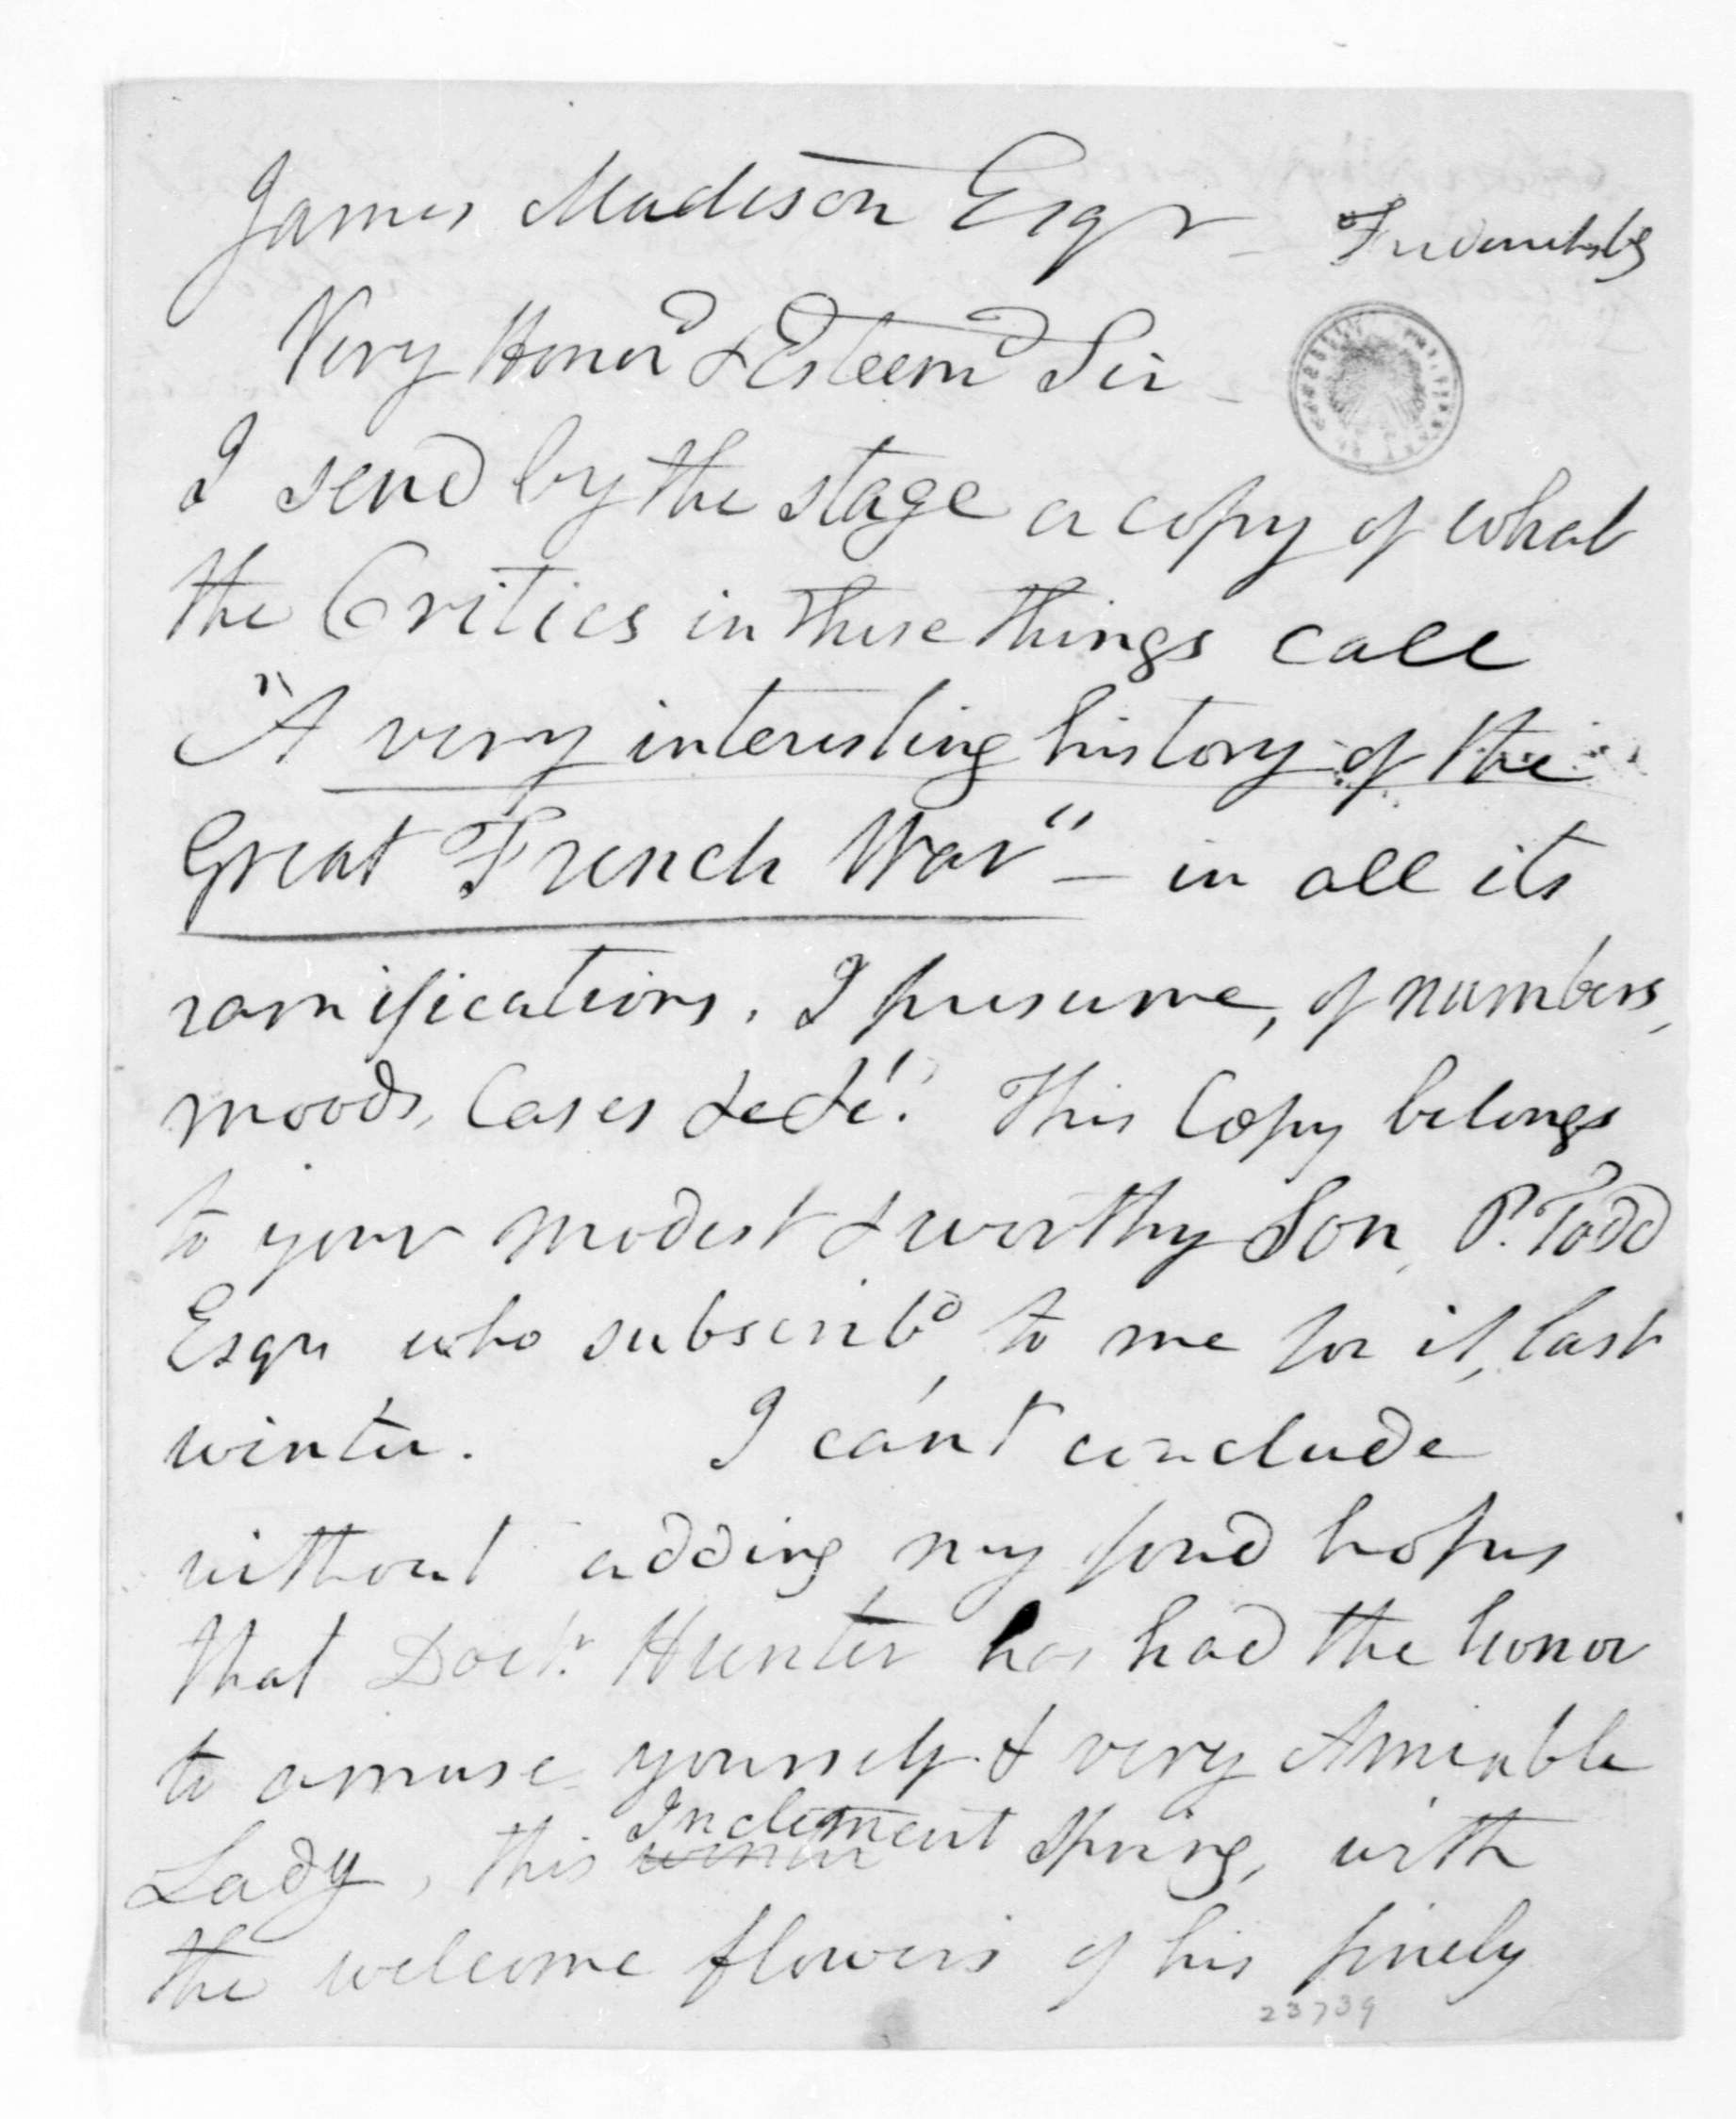 James Madison Esqr - Fredericksbg
Very Honord & Esteemd Sir -
I send by the stage a copy of what
the Critics in these things call
"A very interesting history of the
Great French War" - in all its
ramifications. I presume, of numbers,
moods, Cases &c &c! This Copy belongs
to your modest & worthy Son, P. Todd
Esqr who subscribd, to me for it, last
winter. I can't conclude
without adding my fond hopes
that Doctr. Hunter has had the honor
to amuse yourself & very Amiable
Inclement
Lady, this winter Spring, with
the welcome flowers of his finely
23739